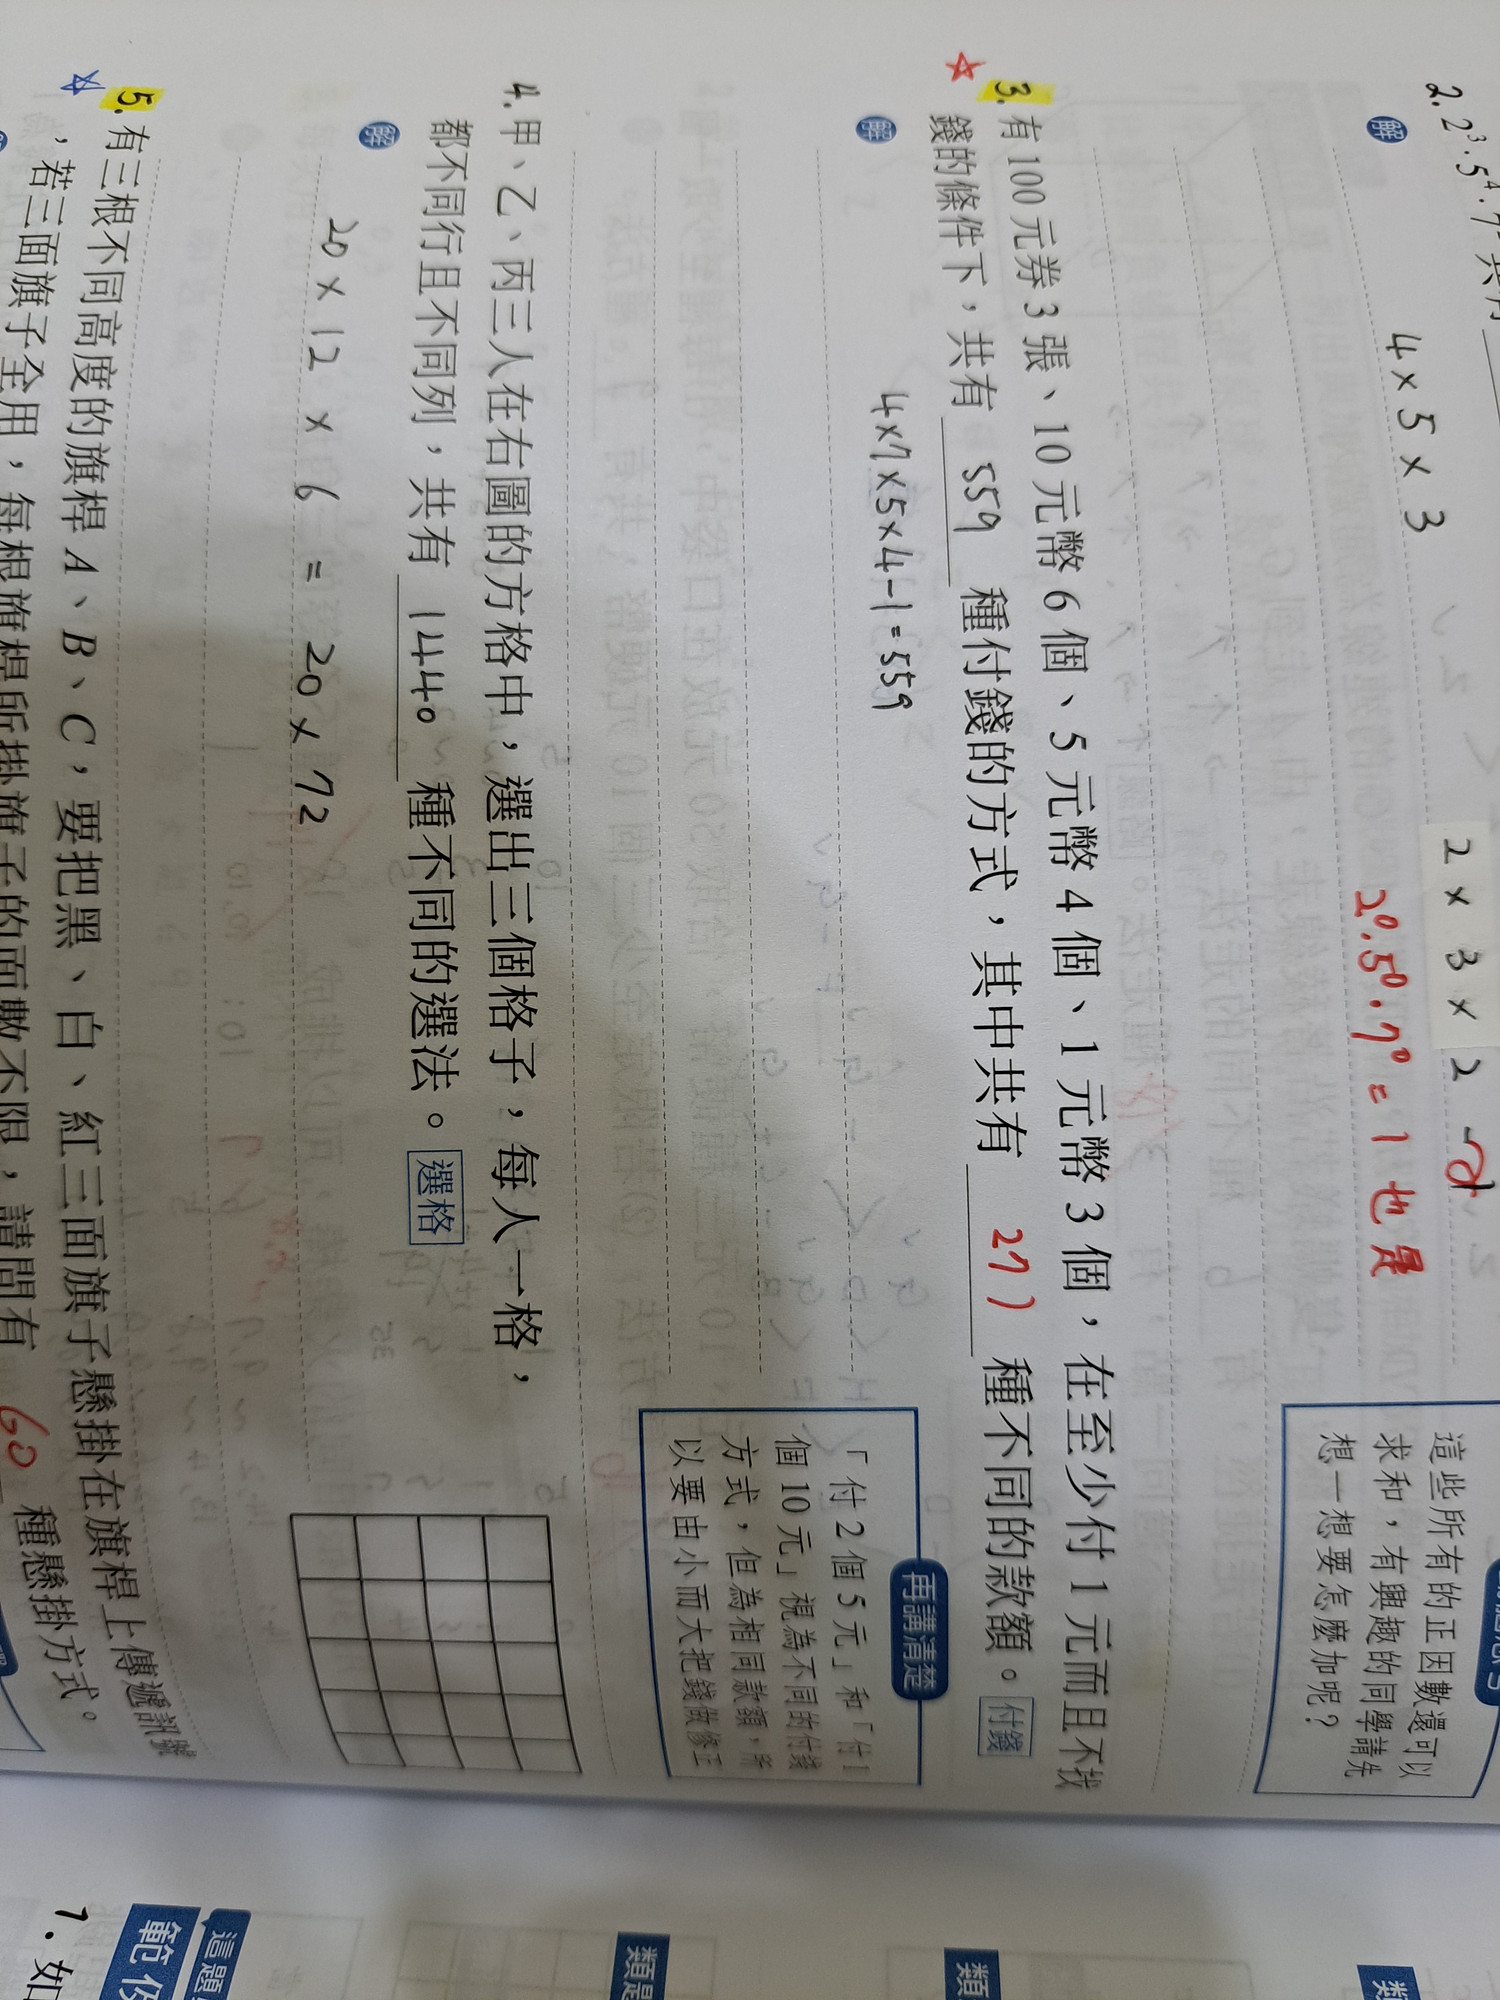 2. 2³·5⁴·7² 共有
解
4×5×3
2×3×2
2⁰·5⁰·7⁰=1也是
這些所有的正因數還可以
求和,有興趣的同學請先
想一想要怎麼加呢?
3. 有100元券3張、10元幣6個、5元幣4個、1元幣3個,在至少付1元而且不找
錢的條件下,共有 559 種付錢的方式,其中共有 271 種不同的款額。付錢
解
4×7×5×4-1=559
再講清楚
「付2個5元」和「付1
個10元」視為不同的付錢
方式,但為相同款額,所
以要由小而大把錢做修正
4. 甲、乙、丙三人在右圖的方格中,選出三個格子,每人一格,
都不同行且不同列,共有 1440 種不同的選法。選格
解
20×12×6=20×72
5. 有三根不同高度的旗桿A、B、C,要把黑、白、紅三面旗子懸掛在旗桿上傳遞訊號
,若三面旗子全用,每根旗桿所掛旗子的面數不限,請問有 60 種懸掛方式。
類
類題
這題
範例
1. 如